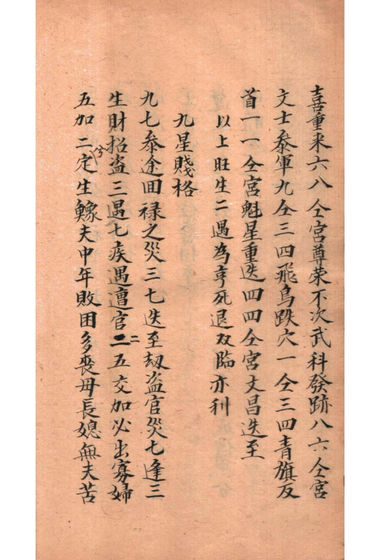 喜重来六八仝宮尊荣不次武科發跡八六仝宮
文士叅軍九仝三四飛鳥跌穴一仝三四青旗反
首一一仝宮魁星重迭四四仝宮文昌迭至
以上旺生二遇為亨死退双臨亦利
九星賤格
九七叅途囬禄之災三七迭至刼盗官災七逢三
生財招盗三遇七疾遇遭官二二五交加必出寡婦
五加二定生鰥夫中年敗困多喪母長媳無夫苦